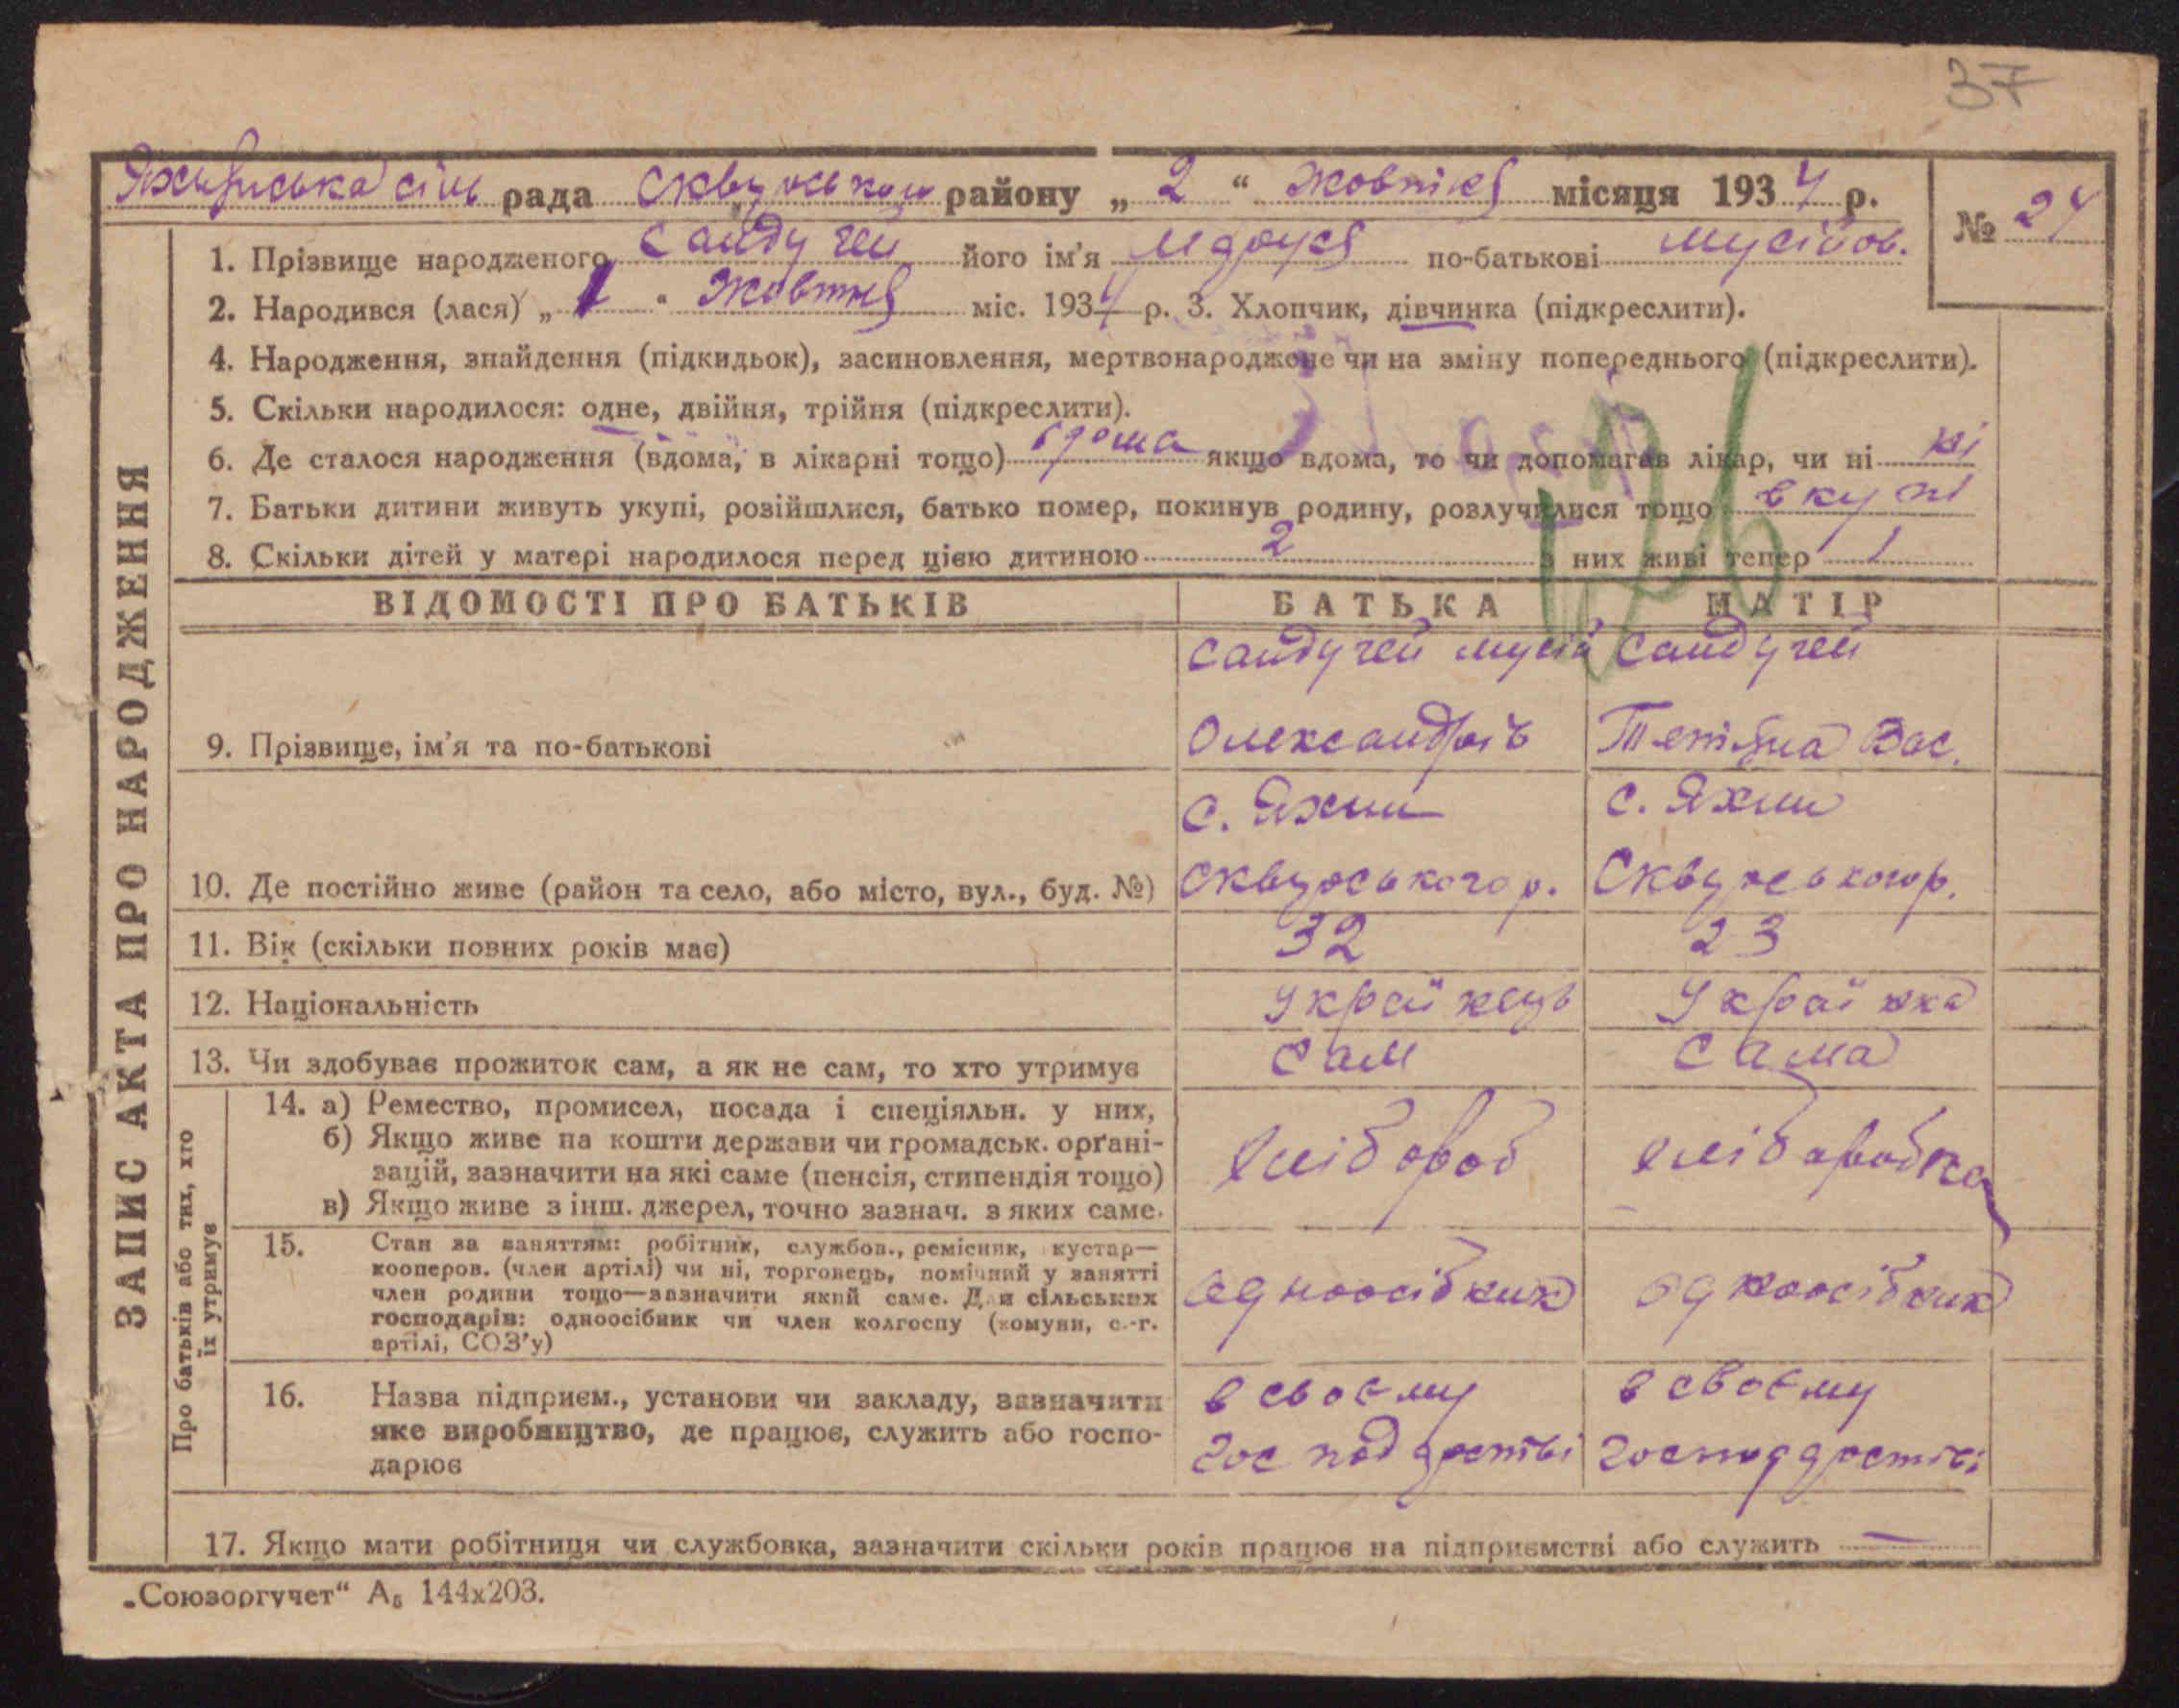 37
сіль рада Сквирського району „ 2 “ жовтня місяця 1934 р.
№ 24
1. Прізвище народженого Сандучей його ім'я по-батькові Мусійов.
2. Народився (лася) „ 1 “ жовтня міс. 1934 р. 3. Хлопчик, дівчинка (підкреслити).
4. Народження, знайдення (підкидьок), засиновлення, мертвонароджене чи на зміну попереднього (підкреслити).
5. Скільки народилося: одне, двійня, трійня (підкреслити).
6. Де сталося народження (вдома, в лікарні тощо) якщо вдома, то чи допомагав лікар, чи ні ні
7. Батьки дитини живуть укупі, розійшлися, батько помер, покинув родину, розлучилися тощо вкупі
8. Скільки дітей у матері народилося перед цією дитиною 2 з них живі тепер 1
ЗАПИС АКТА ПРО НАРОДЖЕННЯ
ВІДОМОСТІ ПРО БАТЬКІВ БАТЬКА МАТІР
Сандучей Мусій Сандучей
9. Прізвище, ім'я та по-батькові Олександрів Тетяна Вас.
с. Яхни с. Яхни
10. Де постійно живе (район та село, або місто, вул., буд. №) Сквирського р. Сквирського р.
11. Вік (скільки повних років має) 32 23
12. Національність Українець Українка
13. Чи здобуває прожиток сам, а як не сам, то хто утримує сам сама
Про батьків або тих, хто їх утримує
14. а) Ремество, промисел, посада і спеціяльн. у них,
б) Якщо живе на кошти держави чи громадськ. орґані-
зацій, зазначити на які саме (пенсія, стипендія тощо) хлібороб хлібаробка
в) Якщо живе з інш. джерел, точно зазнач. з яких саме.
15. Стан за заняттям: робітник, службов., ремісник, кустар—
кооперов. (член артілі) чи ні, торговець, помічний у занятті
член родини тощо—зазначити який саме. Для сільських одноосібник одноосібник
господарів: одноосібник чи член колгоспу (комуни, с.-г.
артілі, СОЗ'у)
16. Назва підприєм., установи чи закладу, зазначити в своєму в своєму
яке виробництво, де працює, служить або госпо-
дарює
17. Якщо мати робітниця чи службовка, зазначити скільки років працює на підприємстві або служить —
„Союзоргучет“ А₅ 144х203.